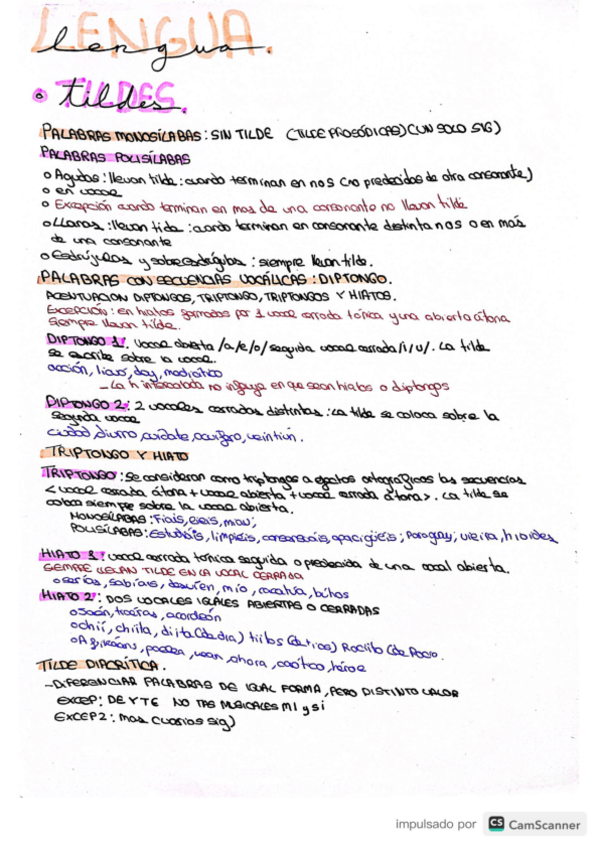 LENGUA.
lengua
• TILDES.
tildes
PALABRAS MONOSÍLABAS: SIN TILDE (TILDE PROSÓDICAS) (UN SOLO SIG)
PALABRAS POLISÍLABAS
o Agudas: llevan tilde: cuando terminan en n o s (no predecidos de otra consonante)
o en vocal
o Excepción cuando terminan en mas de una consonante no llevan tilde
o Llanas: llevan tilde: cuando terminan en consonante distinta n o s o en más
de una consonante
o Esdrújulas y sobreesdrújulas: siempre llevan tilde.
PALABRAS CON SECUENCIAS VOCÁLICAS: DIPTONGO.
ACENTUACION DIPTONGOS, TRIPTONGO, TRIPTONGOS Y HIATOS.
EXCEPCIÓN: en hiatos formados por 1 vocal cerrada tónica y una abierta átona
siempre llevan tilde.
DIPTONGO 1: Vocal abierta /a/e/o/ seguida vocal cerrada /i/u/. La tilde
se escribe sobre la vocal.
acción, day,
- La h intercalada no influye en que sean hiatos o diptongos
DIPTONGO 2: 2 vocales cerradas distintas: La tilde se coloca sobre la
segunda vocal
ciudad, diurno, cuidate, veintiún.
TRIPTONGO Y HIATO
TRIPTONGO: Se consideran como triptongos a efectos ortográficos las secuencias
< vocal cerrada átona + vocal abierta + vocal cerrada átona>. La tilde se
coloca siempre sobre la vocal abierta.
MONOSÍLABAS: Fiais, miau;
POLISÍLABAS: Estudiáis, limpieis, apacigüeis; Paraguay; vieira, hioides
HIATO 1: vocal cerrada tónica seguida o predecida de una vocal abierta.
SIEMPRE LLEVAN TILDE EN LA VOCAL CERRADA
o serías, sabíais, mío, búhos
HIATO 2: DOS VOCALES IGUALES ABIERTAS O CERRADAS
o acordeón
o chií, chiíta, diíta (de día) tiítos (de tíos) Rocíito (de Rocío.
o Afrikáans, ahora, caótico, héroe
TILDE DIACRÍTICA.
- DIFERENCIAR PALABRAS DE IGUAL FORMA, PERO DISTINTO VALOR
EXCEP: DE Y TE NO TAS MUSICALES MI y SI
EXCEP2: mas (varios sig)
impulsado por CS CamScanner